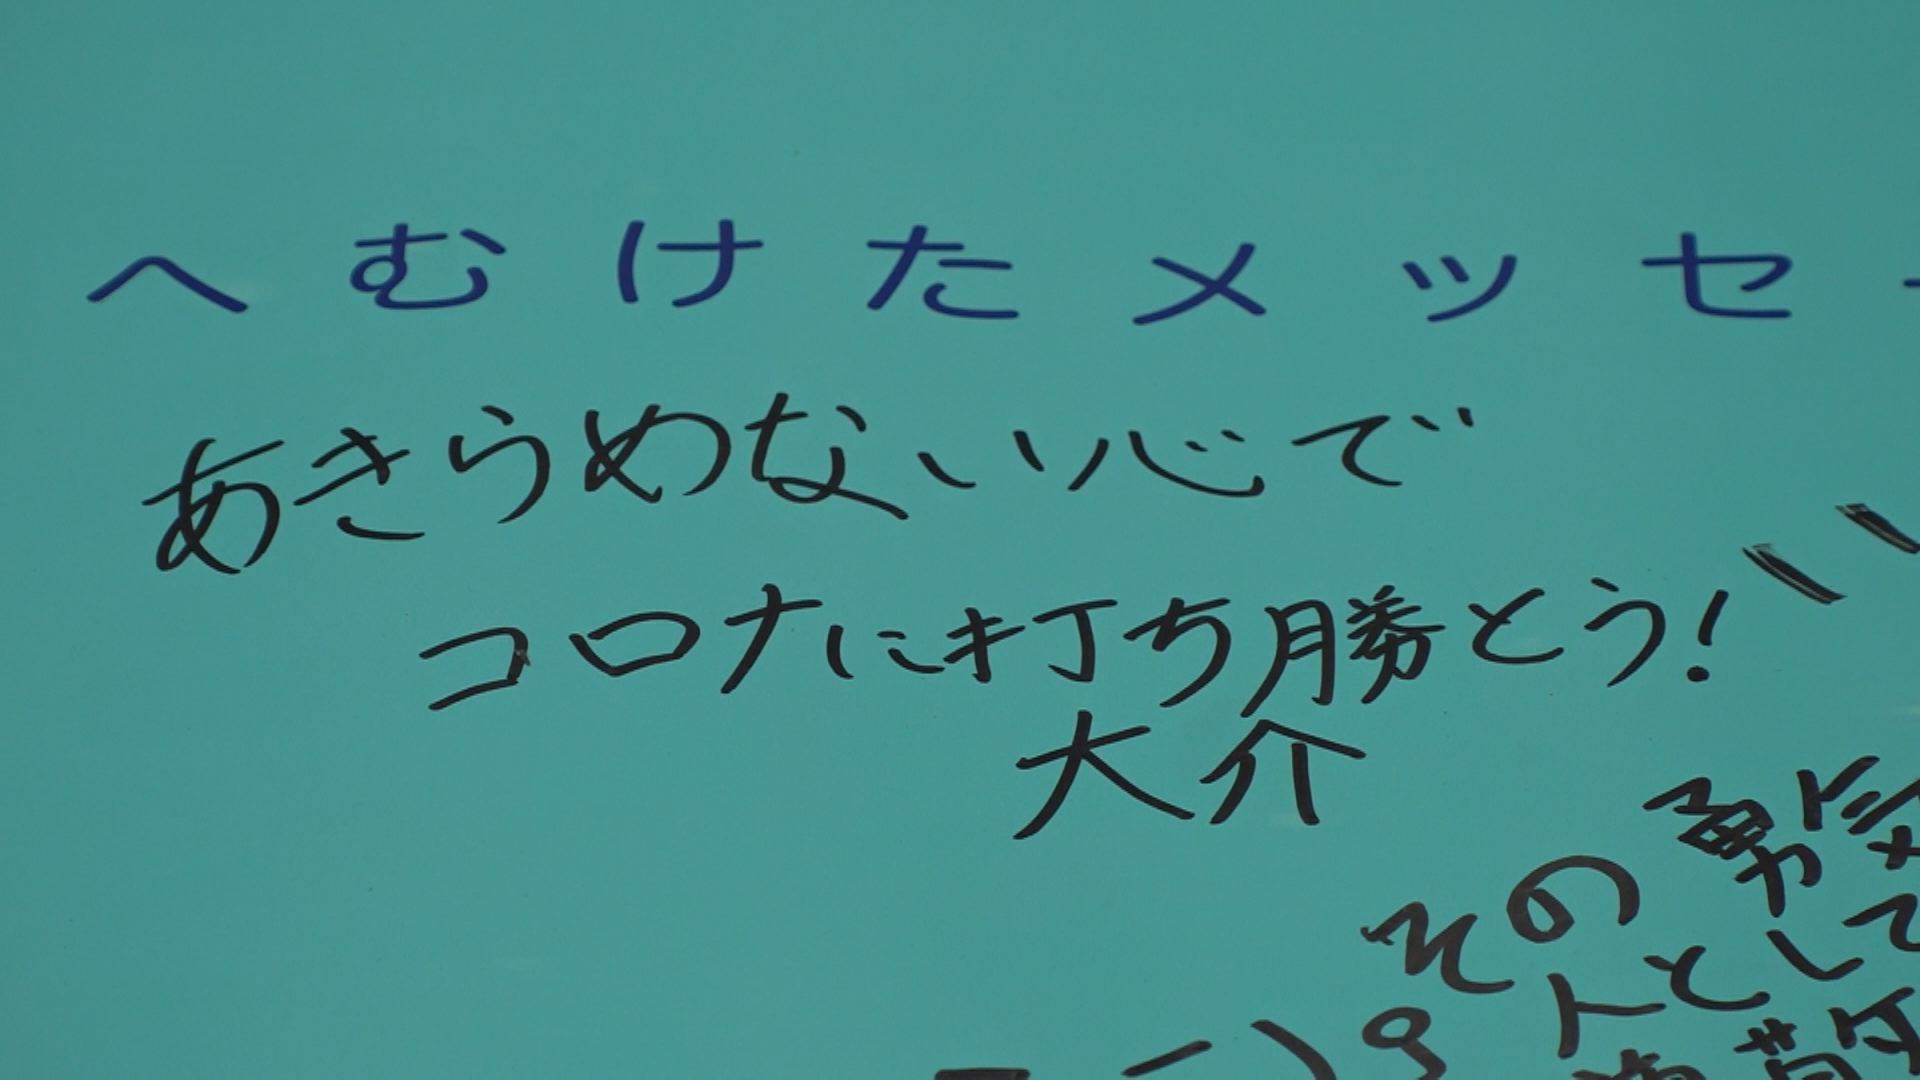 へむけたメッセ
あきらめない心で
コロナに打ち勝とう!
大介
その勇気
人として